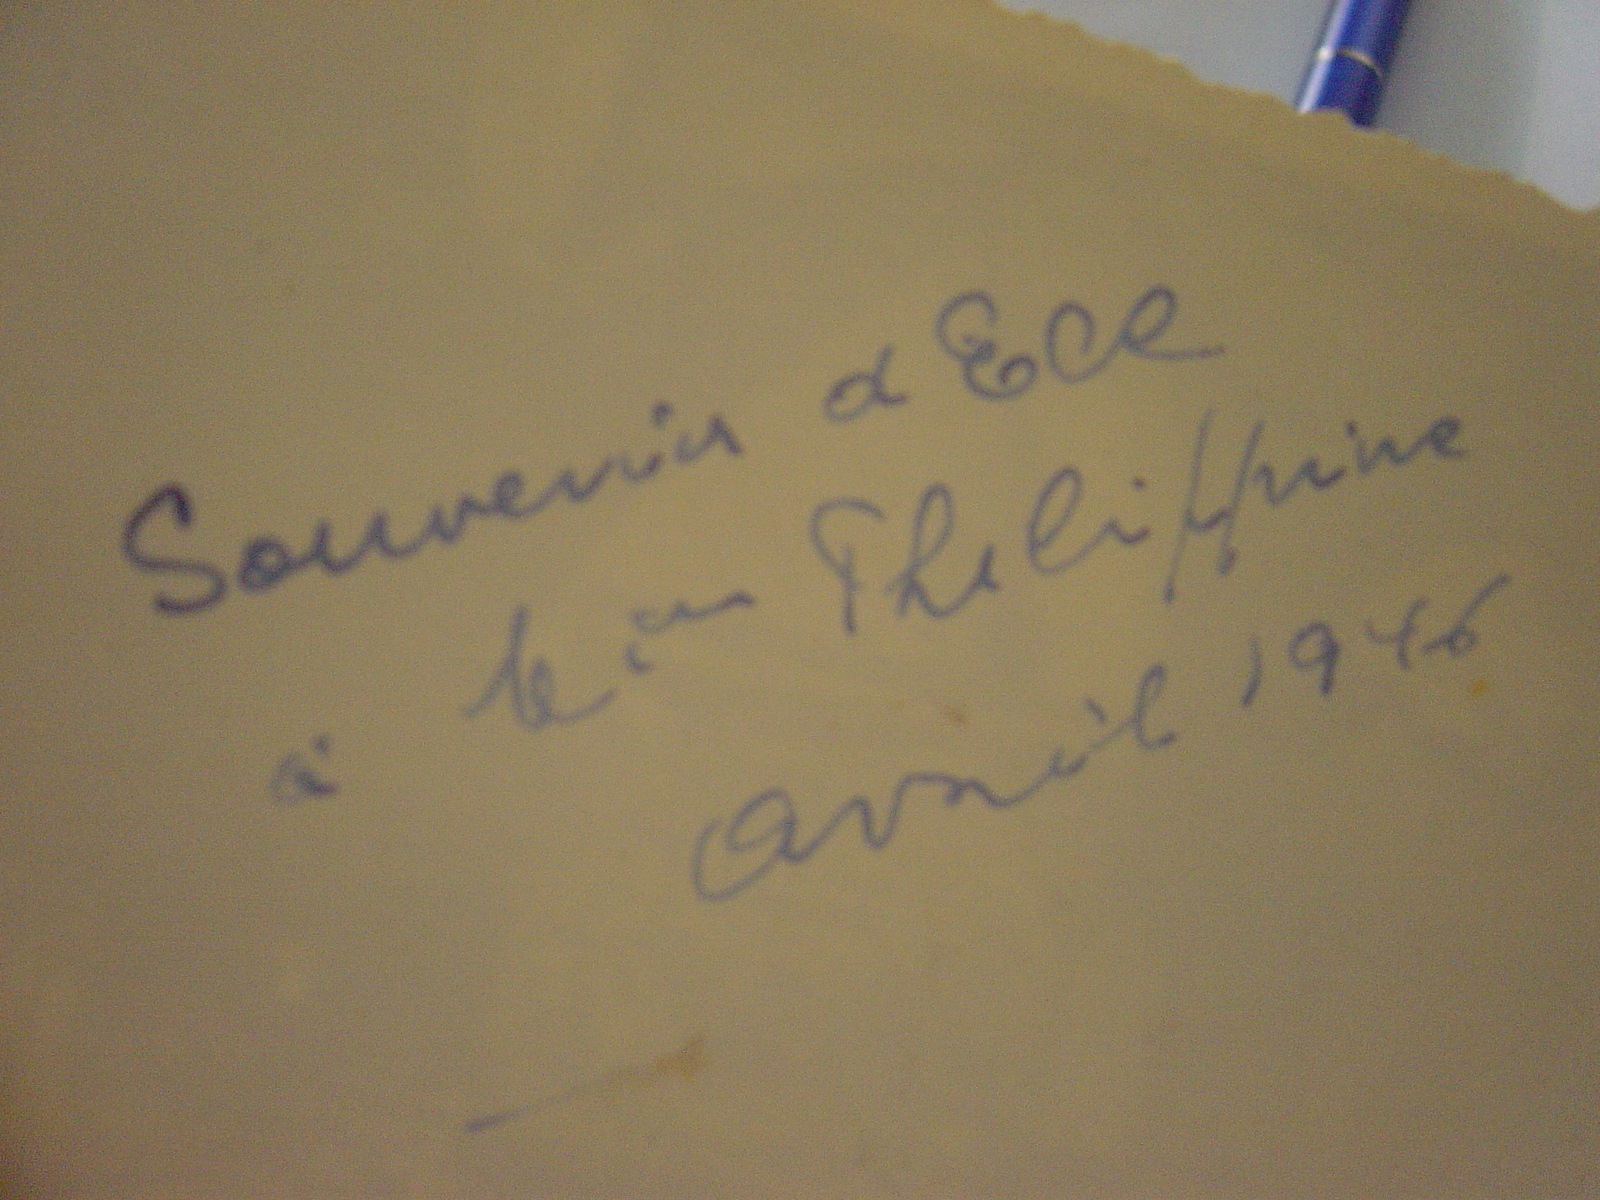 Souvenir d Ecl
à Philippine
avril 1946